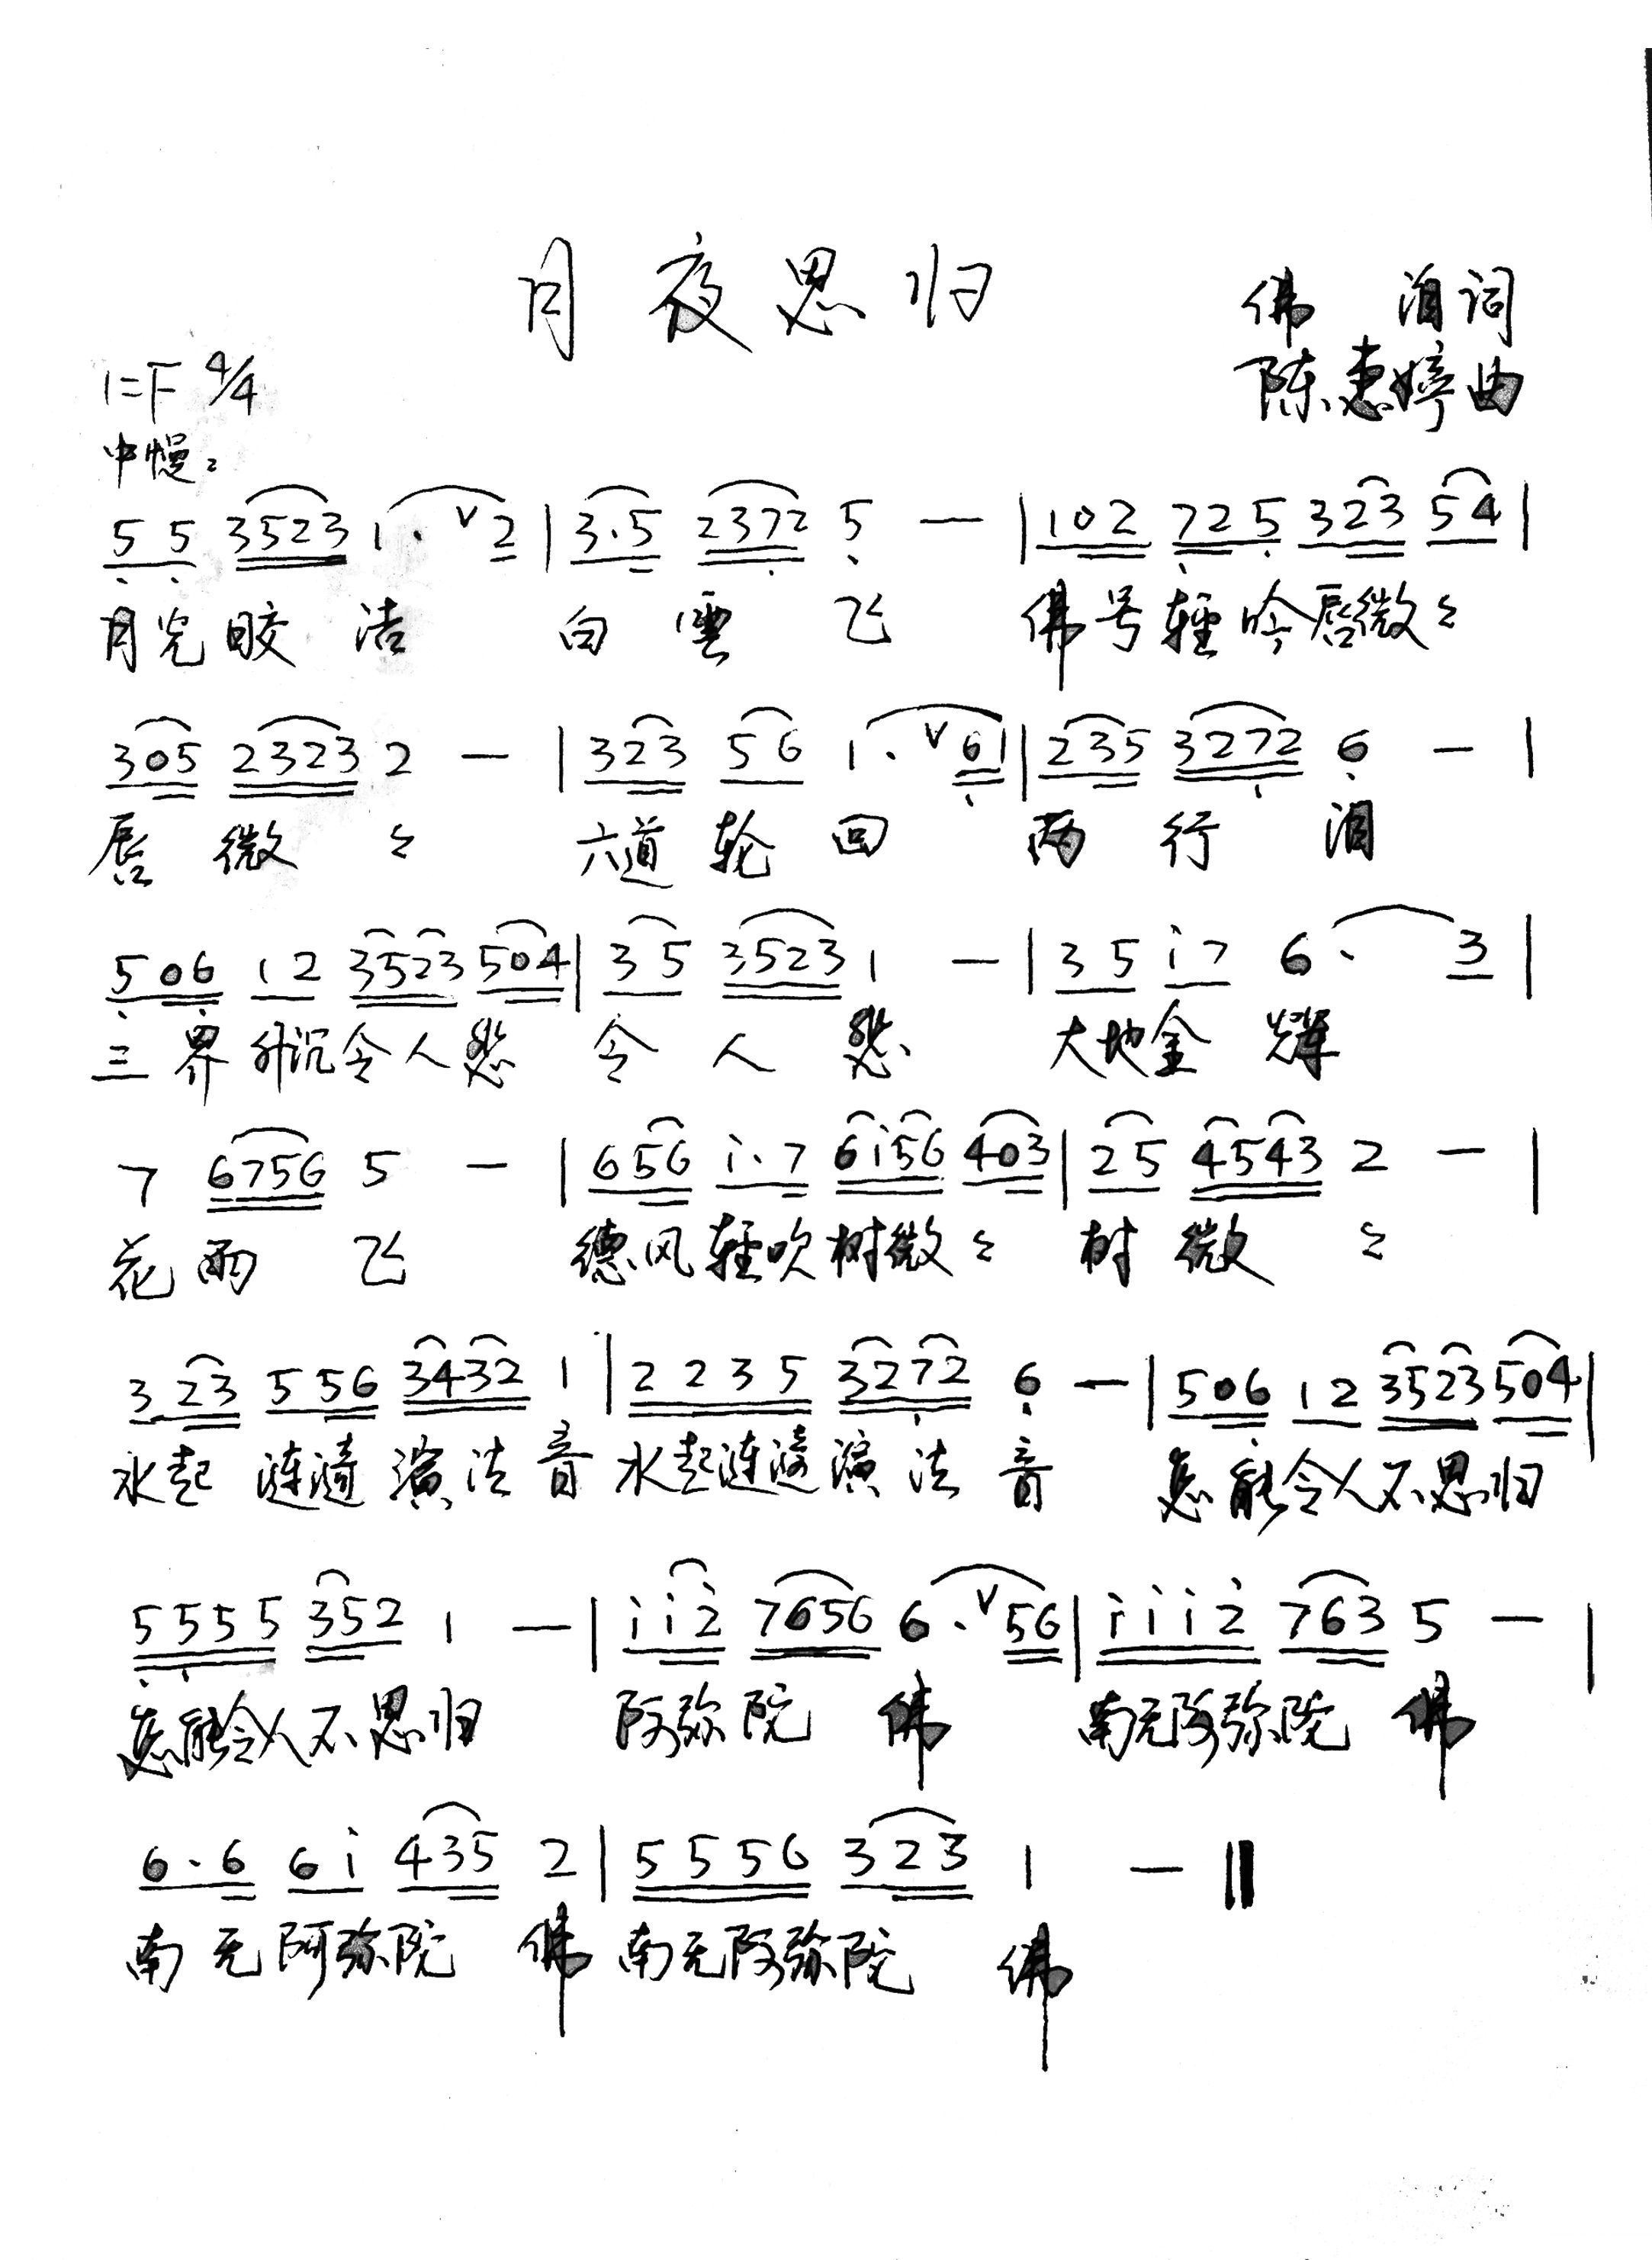 月夜思归
佛泪词
1=F 4/4
陈惠婷曲
中慢:
5 5 3523 1· ∨ 2 | 3·5 2372 5 — | 102 725 323 54 |
月光皎洁 白雲飞 佛号轻吟唇微々
305 2323 2 — | 323 56 1· ∨ 61 | 235 3272 6 — |
唇微々 六道轮回 两行泪
506 12 3523 504 | 35 3523 1 — | 35 i7 6· 3 |
三界升沉令人愁 令人愁 大地金辉
7 6756 5 — | 656 i·7 6i56 403 | 25 4543 2 — |
花雨飞 德风轻吹树微々 树微々
323 556 3432 1 | 2235 3272 6 — | 506 12 3523 504 |
水起涟漪演法音 水起涟漪演法音 怎能令人不思归
5555 352 1 — | ii2 7656 6· ∨ 56 | iii2 763 5 — |
怎能令人不思归 阿弥陀佛 南无阿弥陀佛
6·6 6i 435 2 | 5556 323 1 — ‖
南无阿弥陀佛 南无阿弥陀佛